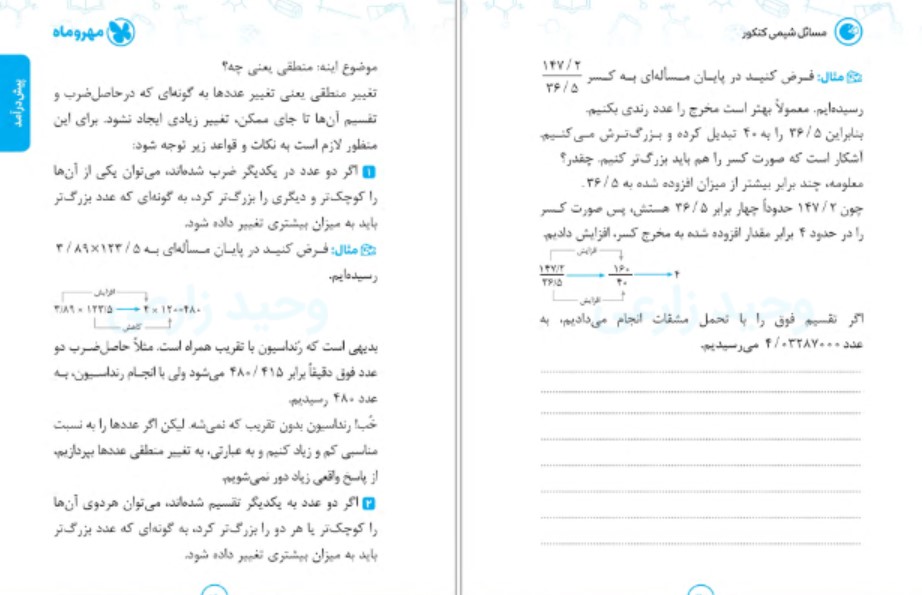 مهروماه
پیش‌درآمد
موضوع اینه: منطقی یعنی چه؟
تغییر منطقی یعنی تغییر عددها به گونه‌ای که درحاصل‌ضرب و
تقسیم آن‌ها تا جای ممکن، تغییر زیادی ایجاد نشود. برای این
منظور لازم است به نکات و قواعد زیر توجه شود:
۱ اگر دو عدد در یکدیگر ضرب شده‌اند، می‌توان یکی از آن‌ها
را کوچک‌تر و دیگری را بزرگ‌تر کرد، به گونه‌ای که عدد بزرگ‌تر
باید به میزان بیشتری تغییر داده شود.
مثال: فـرض کنیـد در پایـان مـسأله‌ای بـه ۳/۸۹×۱۲۳/۵
رسیده‌ایم.
افزایش
۳/۸۹ × ۱۲۳/۵ → ۴ × ۱۲۰=۴۸۰
کاهش
بدیهی است که رُنداسیون با تقریب همراه است. مثلاً حاصل‌ضـرب دو
عدد فوق دقیقاً برابر ۴۸۰/۴۱۵ می‌شود ولی با انجـام رنداسـیون، بـه
عدد ۴۸۰ رسیدیم.
خُب! رنداسیون بدون تقریب که نمی‌شه. لیکن اگر عددها را به نسبت
مناسبی کم و زیاد کنیم و به عبارتی، به تغییر منطقی عددها بپردازیم،
از پاسخ واقعی زیاد دور نمی‌شویم.
۲ اگر دو عدد به یکدیگر تقسیم شده‌اند، می‌توان هردوی آن‌ها
را کوچک‌تر یا هر دو را بزرگ‌تر کرد، به گونه‌ای که عدد بزرگ‌تر
باید به میزان بیشتری تغییر داده شود.
مسائل شیمی کنکور
مثال: فـرض کنیـد در پایـان مـسأله‌ای بـه کـسر ۱۴۷/۲
۳۶/۵
رسیده‌ایم. معمولاً بهتر است مخرج را عدد رندی بکنیم.
بنابراین ۳۶/۵ را به ۴۰ تبدیل کرده و بـزرگ‌تـرش مـی‌کنـیم.
آشکار است که صورت کسر را هم باید بزرگ‌تر کنیم. چقدر؟
معلومه، چند برابر بیشتر از میزان افزوده شده به ۳۶/۵.
چون ۱۴۷/۲ حدوداً چهار برابر ۳۶/۵ هستش، پس صورت کسر
را در حدود ۴ برابر مقدار افزوده شده به مخرج کسر، افزایش دادیم.
افزایش
۱۴۷/۲ → ۱۶۰ → ۴
۳۶/۵ ۴۰
افزایش
اگر تقسیم فوق را با تحمل مشقات انجام می‌دادیم، به
عدد ۴/۰۳۲۸۷۰۰۰ می‌رسیدیم.
وحید زارعی
وحید زارعی